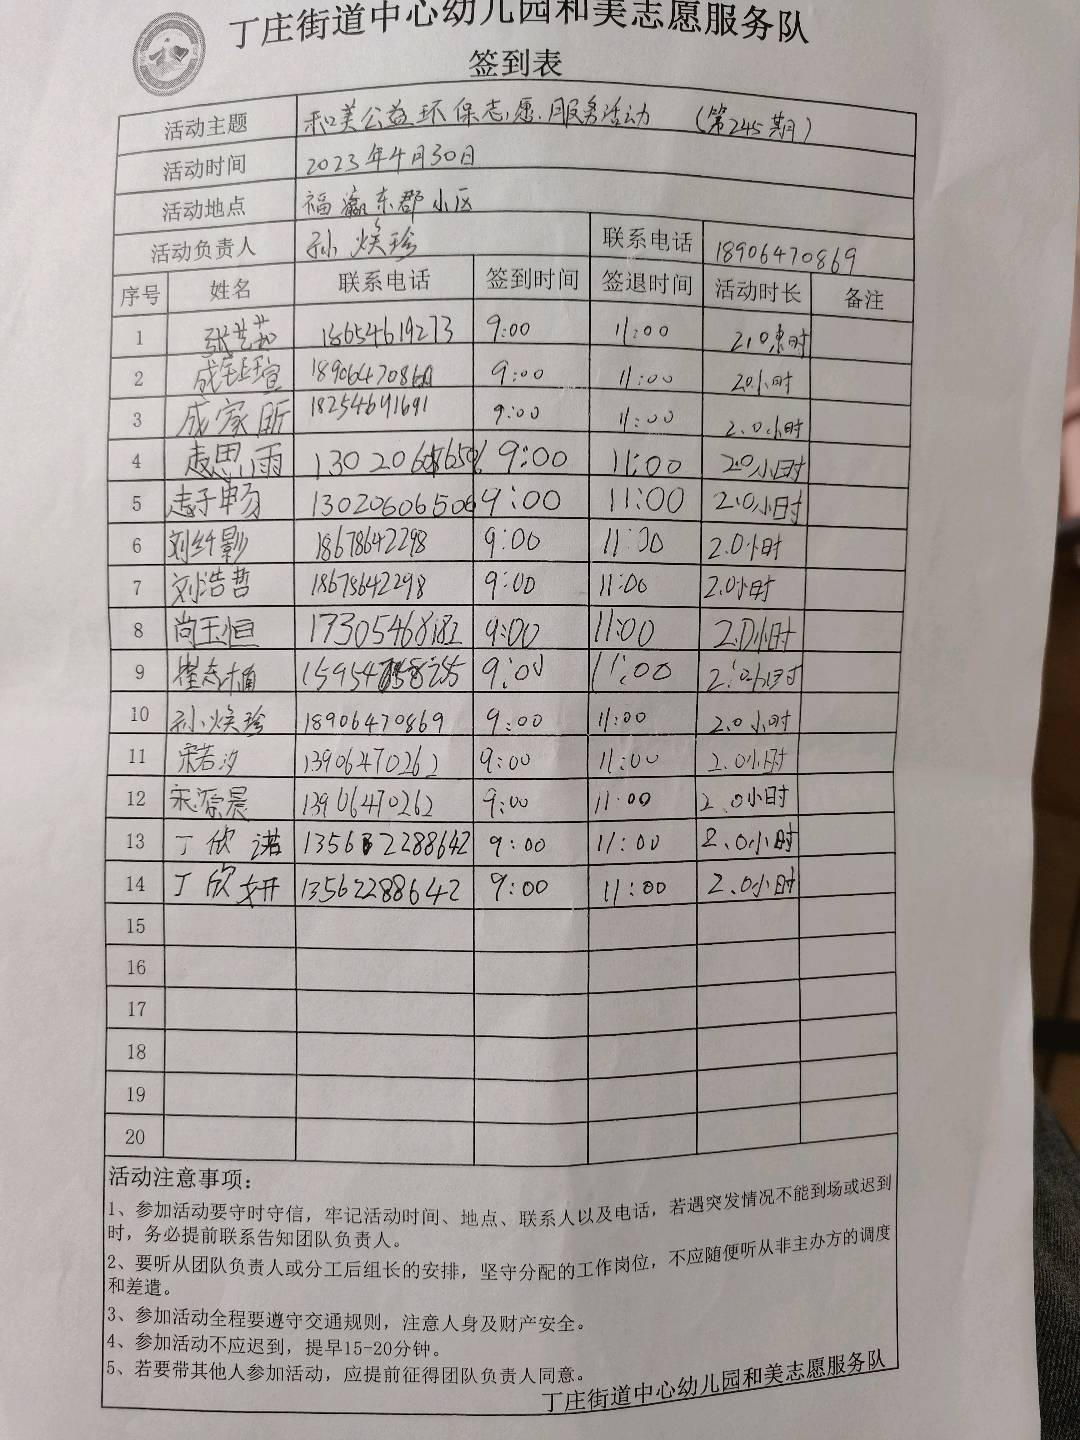 丁庄街道中心幼儿园和美志愿服务队
签到表
活动主题 和美公益环保志愿服务活动 (第245期)
活动时间 2023年4月30日
活动地点 福瀛东郡小区
活动负责人 孙焕珍 联系电话 18906470869
序号 姓名 联系电话 签到时间 签退时间 活动时长 备注
1 18654619273 9:00 11:00 2.0小时
2 成钰瑄 9:00 11:00 2.0小时
3 成家昕 18254691691 9:00 11:00 2.0小时
4 9:00 11:00 2.0小时
5 13020606506 9:00 11:00 2.0小时
6 刘纤影 18678642298 9:00 11:00 2.0小时
7 刘浩哲 18678642298 9:00 11:00 2.0小时
8 尚玉恒 17305468182 9:00 11:00 2.0小时
9 9:00 11:00 2.0小时
10 孙焕珍 18906470869 9:00 11:00 2.0小时
11 宋若汐 13906470262 9:00 11:00 2.0小时
12 宋源晨 13906470262 9:00 11:00 2.0小时
13 丁欣诺 13562288642 9:00 11:00 2.0小时
14 丁欣妍 13562288642 9:00 11:00 2.0小时
15
16
17
18
19
20
活动注意事项:
1、参加活动要守时守信，牢记活动时间、地点、联系人以及电话，若遇突发情况不能到场或迟到
时，务必提前联系告知团队负责人。
2、要听从团队负责人或分工后组长的安排，坚守分配的工作岗位，不应随便听从非主办方的调度
和差遣。
3、参加活动全程要遵守交通规则，注意人身及财产安全。
4、参加活动不应迟到，提早15-20分钟。
5、若要带其他人参加活动，应提前征得团队负责人同意。
丁庄街道中心幼儿园和美志愿服务队